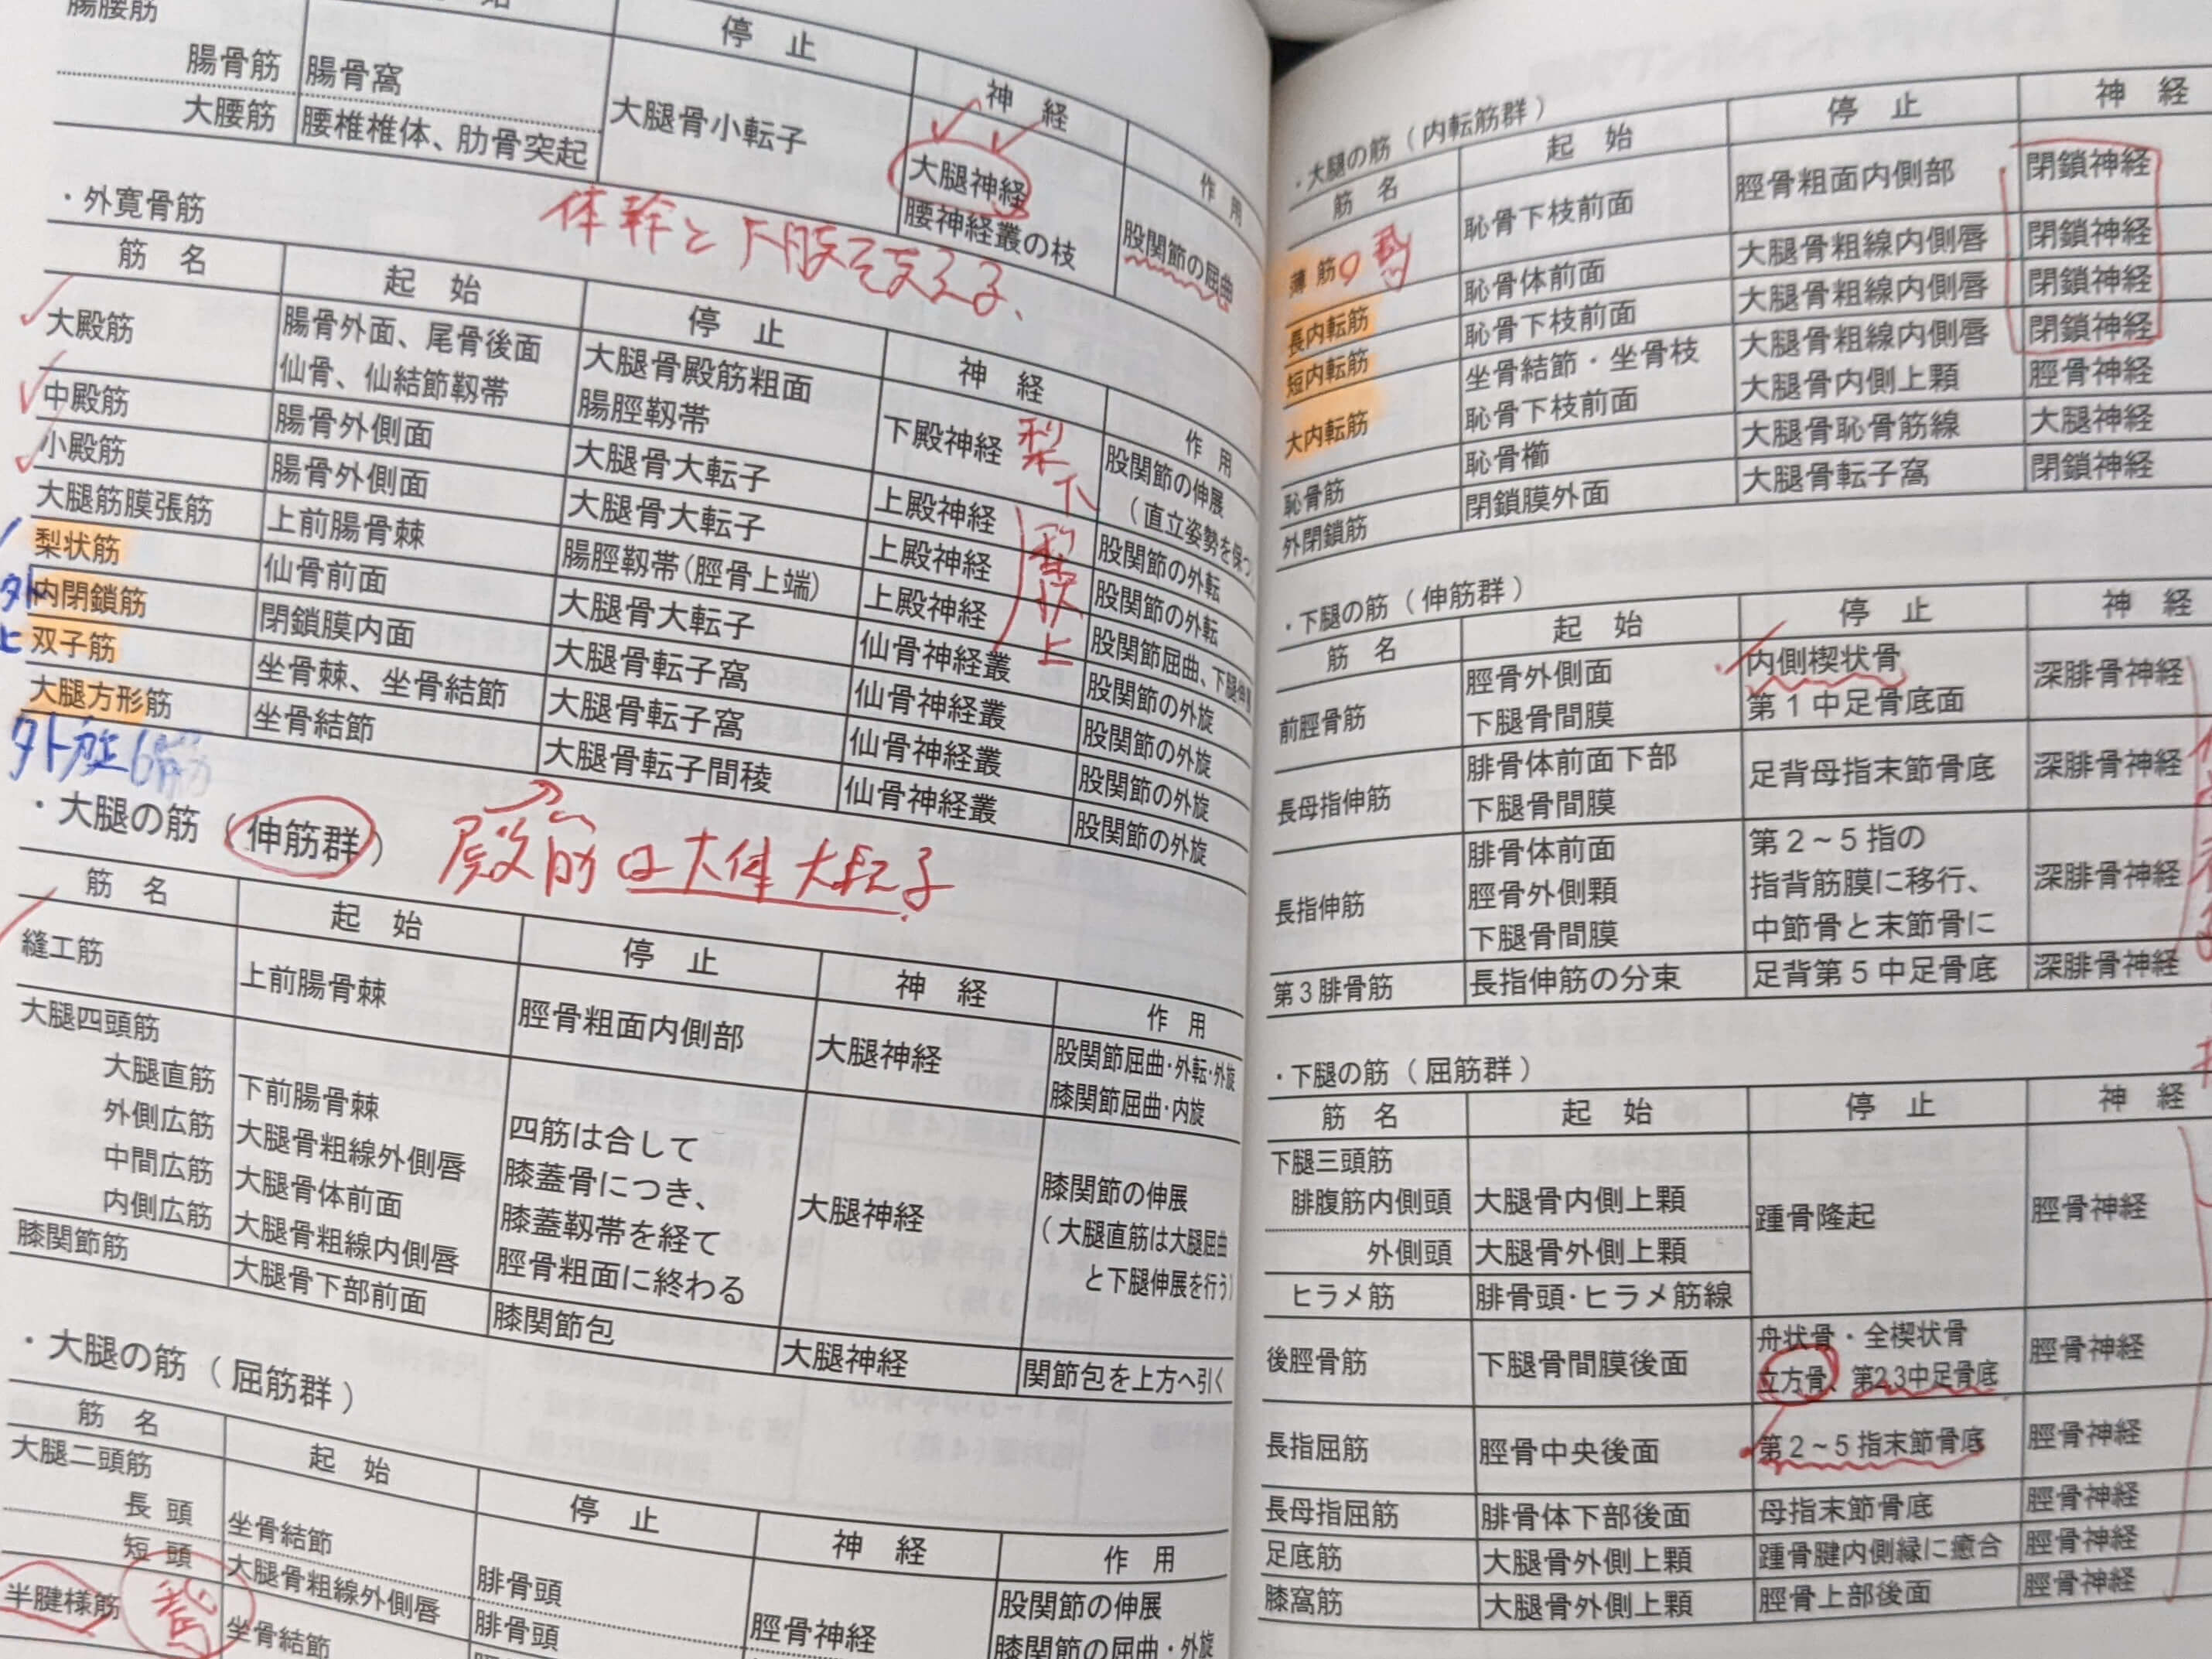 腸腰筋 始 停 止 神 経 作 用
腸骨筋 腸骨窩 大腿骨小転子 大腿神経 股関節の屈曲
大腰筋 腰椎椎体、肋骨突起 腰神経叢の枝
体幹と下肢を支える、
・外寛骨筋
筋 名 起 始 停 止 神 経 作 用
大殿筋 腸骨外面、尾骨後面 大腿骨殿筋粗面 下殿神経 股関節の伸展
仙骨、仙結節靱帯 腸脛靱帯 (直立姿勢を保つ
梨下
中殿筋 腸骨外側面 大腿骨大転子 上殿神経 股関節の外転
小殿筋 腸骨外側面 大腿骨大転子 上殿神経 股関節の外転
大腿筋膜張筋 上前腸骨棘 腸脛靱帯(脛骨上端) 上殿神経 股関節屈曲、下腿伸展
梨状上
梨状筋 仙骨前面 大腿骨大転子 仙骨神経叢 股関節の外旋
外 内閉鎖筋 閉鎖膜内面 大腿骨転子窩 仙骨神経叢 股関節の外旋
上 双子筋 坐骨棘、坐骨結節 大腿骨転子窩 仙骨神経叢 股関節の外旋
大腿方形筋 坐骨結節 大腿骨転子間稜 仙骨神経叢 股関節の外旋
外旋6筋
・大腿の筋(伸筋群)
殿筋は大体大転子
筋 名 起 始 停 止 神 経 作 用
縫工筋 上前腸骨棘 脛骨粗面内側部 大腿神経 股関節屈曲・外転・外旋
膝関節屈曲・内旋
大腿四頭筋
大腿直筋 下前腸骨棘 四筋は合して 大腿神経 膝関節の伸展
外側広筋 大腿骨粗線外側唇 膝蓋骨につき、 (大腿直筋は大腿屈曲
中間広筋 大腿骨体前面 膝蓋靱帯を経て と下腿伸展を行う)
内側広筋 大腿骨粗線内側唇 脛骨粗面に終わる
膝関節筋 大腿骨下部前面 膝関節包 大腿神経 関節包を上方へ引く
・大腿の筋(屈筋群)
筋 名 起 始 停 止 神 経 作 用
大腿二頭筋
長 頭 坐骨結節 腓骨頭 脛骨神経 股関節の伸展
短 頭 大腿骨粗線外側唇 腓骨頭 膝関節の屈曲・外旋
半腱様筋 坐骨結節
・大腿の筋(内転筋群)
筋 名 起 始 停 止 神 経
薄 筋 恥骨下枝前面 脛骨粗面内側部 閉鎖神経
長内転筋 恥骨体前面 大腿骨粗線内側唇 閉鎖神経
短内転筋 恥骨下枝前面 大腿骨粗線内側唇 閉鎖神経
大内転筋 坐骨結節・坐骨枝 大腿骨粗線内側唇 閉鎖神経
恥骨下枝前面 大腿骨内側上顆 脛骨神経
恥骨筋 恥骨櫛 大腿骨恥骨筋線 大腿神経
外閉鎖筋 閉鎖膜外面 大腿骨転子窩 閉鎖神経
・下腿の筋(伸筋群)
筋 名 起 始 停 止 神 経
前脛骨筋 脛骨外側面 内側楔状骨 深腓骨神経
下腿骨間膜 第1中足骨底面
長母指伸筋 腓骨体前面下部 足背母指末節骨底 深腓骨神経
下腿骨間膜
長指伸筋 腓骨体前面 第2～5指の 深腓骨神経
脛骨外側顆 指背筋膜に移行、
下腿骨間膜 中節骨と末節骨に
第3腓骨筋 長指伸筋の分束 足背第5中足骨底 深腓骨神経
・下腿の筋(屈筋群)
筋 名 起 始 停 止 神 経
下腿三頭筋
腓腹筋内側頭 大腿骨内側上顆 踵骨隆起 脛骨神経
外側頭 大腿骨外側上顆
ヒラメ筋 腓骨頭・ヒラメ筋線
後脛骨筋 下腿骨間膜後面 舟状骨・全楔状骨 脛骨神経
立方骨、第2,3中足骨底
長指屈筋 脛骨中央後面 第2～5指末節骨底 脛骨神経
長母指屈筋 腓骨体下部後面 母指末節骨底 脛骨神経
足底筋 大腿骨外側上顆 踵骨腱内側縁に癒合 脛骨神経
膝窩筋 大腿骨外側上顆 脛骨上部後面 脛骨神経